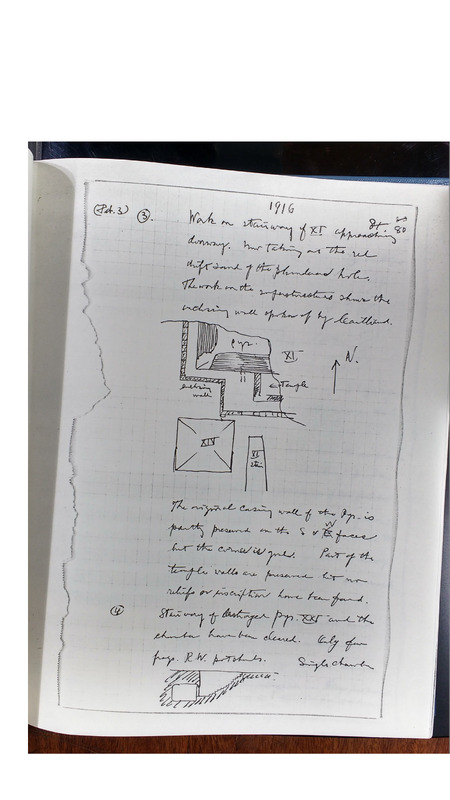 1916
(Feb. 3) ③. Work on stairway of XI approaching 80
doorway. Now taking out the red
drift sand of the plunderers hole.
The work on the superstructure shows the
enclosing wall spoken of by Cailliaud.
pyr.
XI.
N.
enclosing
wall
temple
XIV
XI
stair
The original casing wall of the Pyr. is
partly preserved on the S & W faces
but the corner is gone. Part of the
temple walls are preserved but no
reliefs or inscription have been found.
④ Stairway of destroyed Pyr. XXI and the
chamber have been cleared. Only few
frag. R.W. potsherds. Single chamber